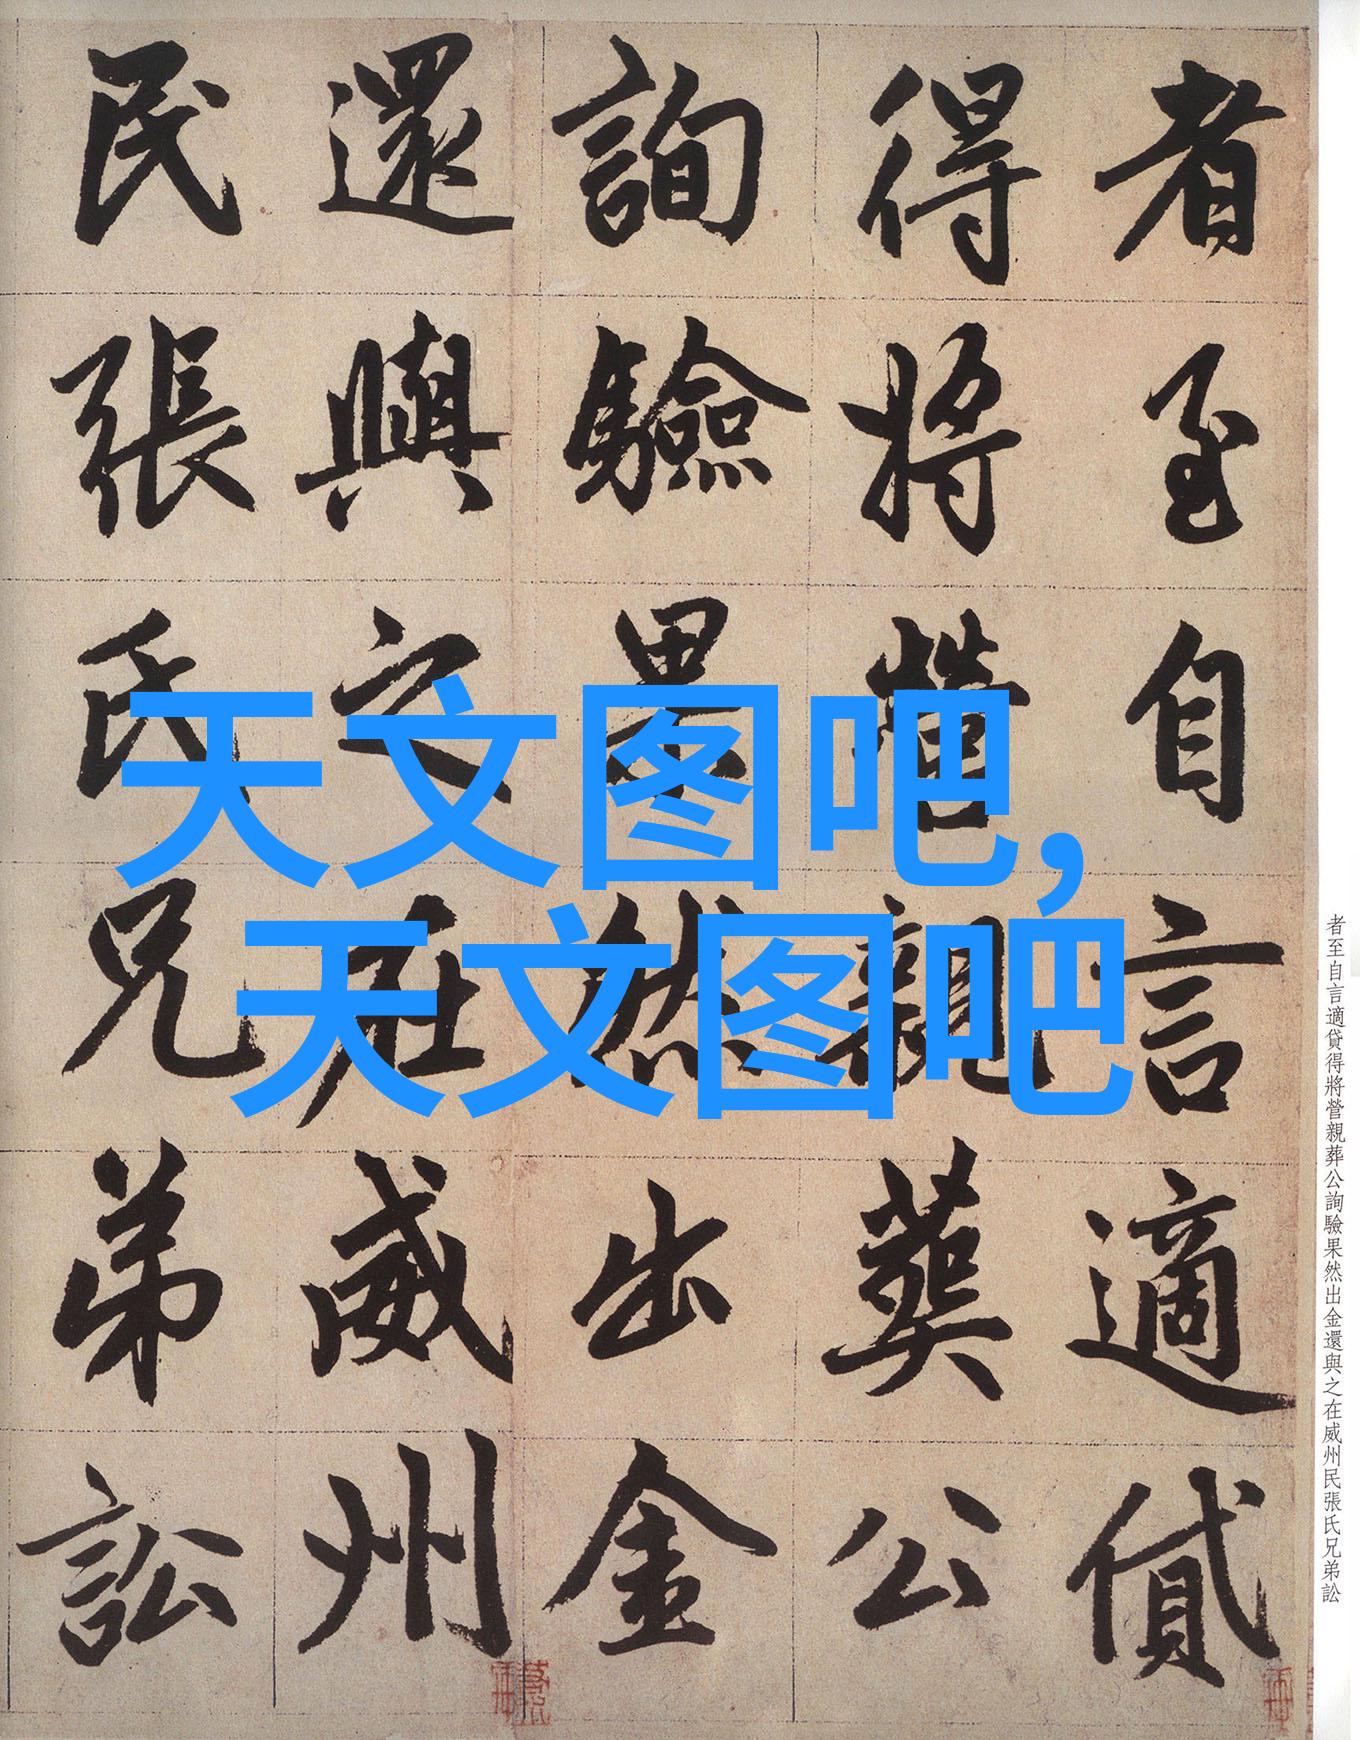 者至自言適貸
得將營親葬公
詢驗果然出金
還與之在威州
民張氏兄弟訟
天文图吧,
天文图吧
者至自言適貸得將營親葬公詢驗果然出金還與之在威州民張氏兄弟訟